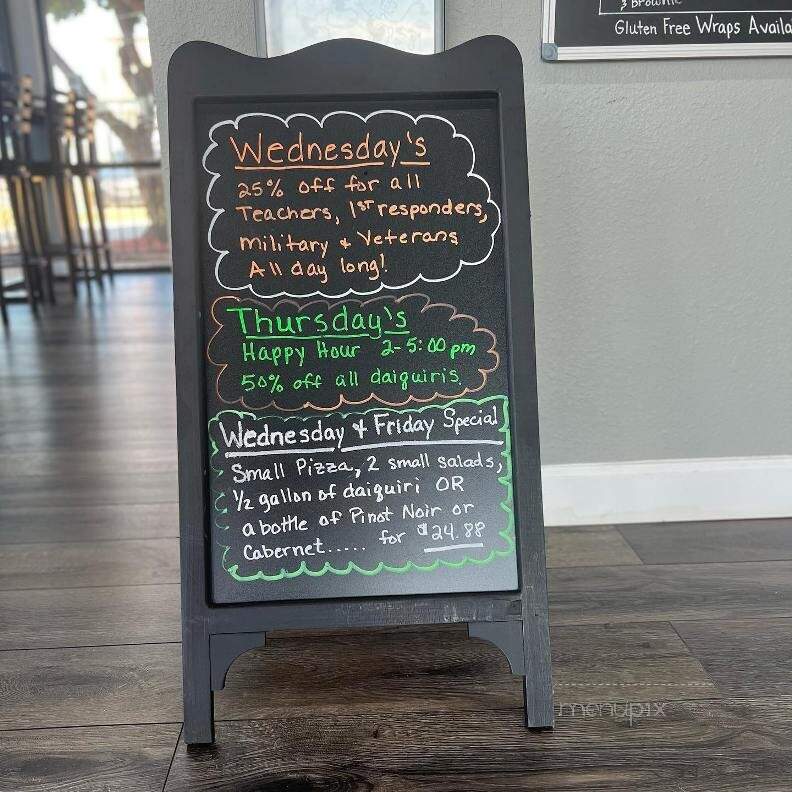 & Brownie
Gluten Free Wraps
Wednesday's
25% off for all
Teachers, 1ST responders,
military & Veterans
All day long!
Thursday's
Happy Hour 2-5:00 pm
50% off all daiquiris.
Wednesday & Friday Special
Small Pizza, 2 small salads,
1/2 gallon of daiquiri OR
a bottle of Pinot Noir or
Cabernet..... for $24.88
menupix